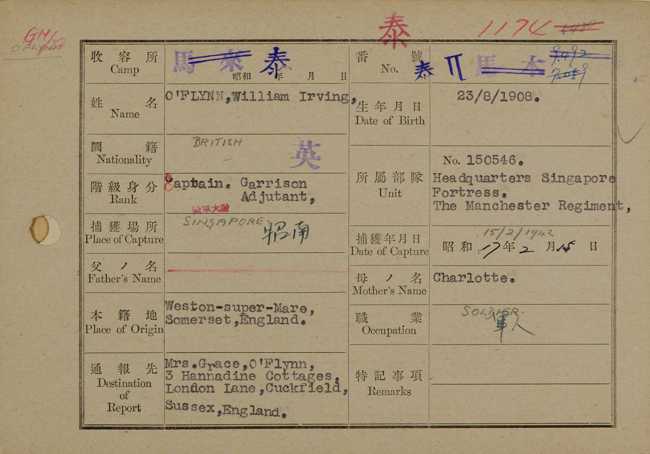 泰 1174
收容所 Camp 馬來 泰 昭和 年 月 日
番號 No. 泰 II 馬本
姓名 Name O'FLYNN,William Irving,
生年月日 Date of Birth 23/8/1908.
國籍 Nationality BRITISH 英
階級身分 Rank Captain. Garrison
Adjutant,
所屬部隊 Unit No. 150546.
Headquarters Singapore
Fortress.
The Manchester Regiment,
捕獲場所 Place of Capture SINGAPORE 昭南
捕獲年月日 Date of Capture 15/2/1942
昭和 17年 2月 15日
父ノ名 Father's Name
母ノ名 Mother's Name Charlotte.
本籍地 Place of Origin Weston-super-Mare,
Somerset,England.
職業 Occupation SOLDIER
軍人
通報先 Destination of Report Mrs.Grace,O'Flynn,
3 Hannadine Cottages,
London Lane,Cuckfield,
Sussex,England.
特記事項 Remarks